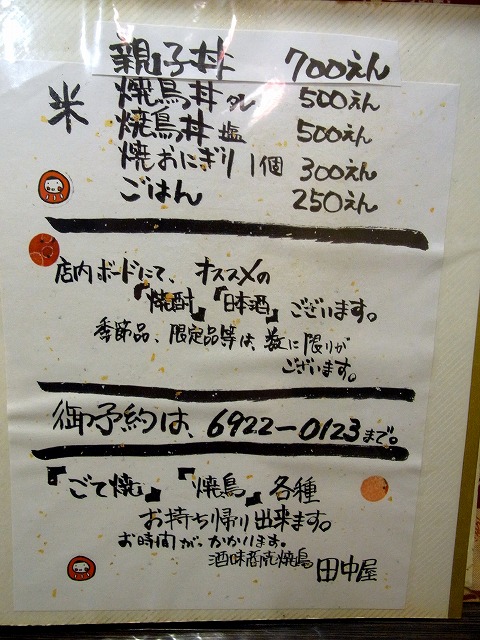 米
親子丼 700えん
焼鳥丼 タレ 500えん
焼鳥丼 塩 500えん
焼おにぎり 1個 300えん
ごはん 250えん
店内ボードにて、オススメの
『焼酎』『日本酒』ございます。
季節品、限定品等は、数に限りが
ございます。
御予約は、6922-0123まで。
『ごて焼』『焼鳥』各種
お持ち帰り出来ます。
お時間が、かかります。
酒味商売焼鳥 田中屋